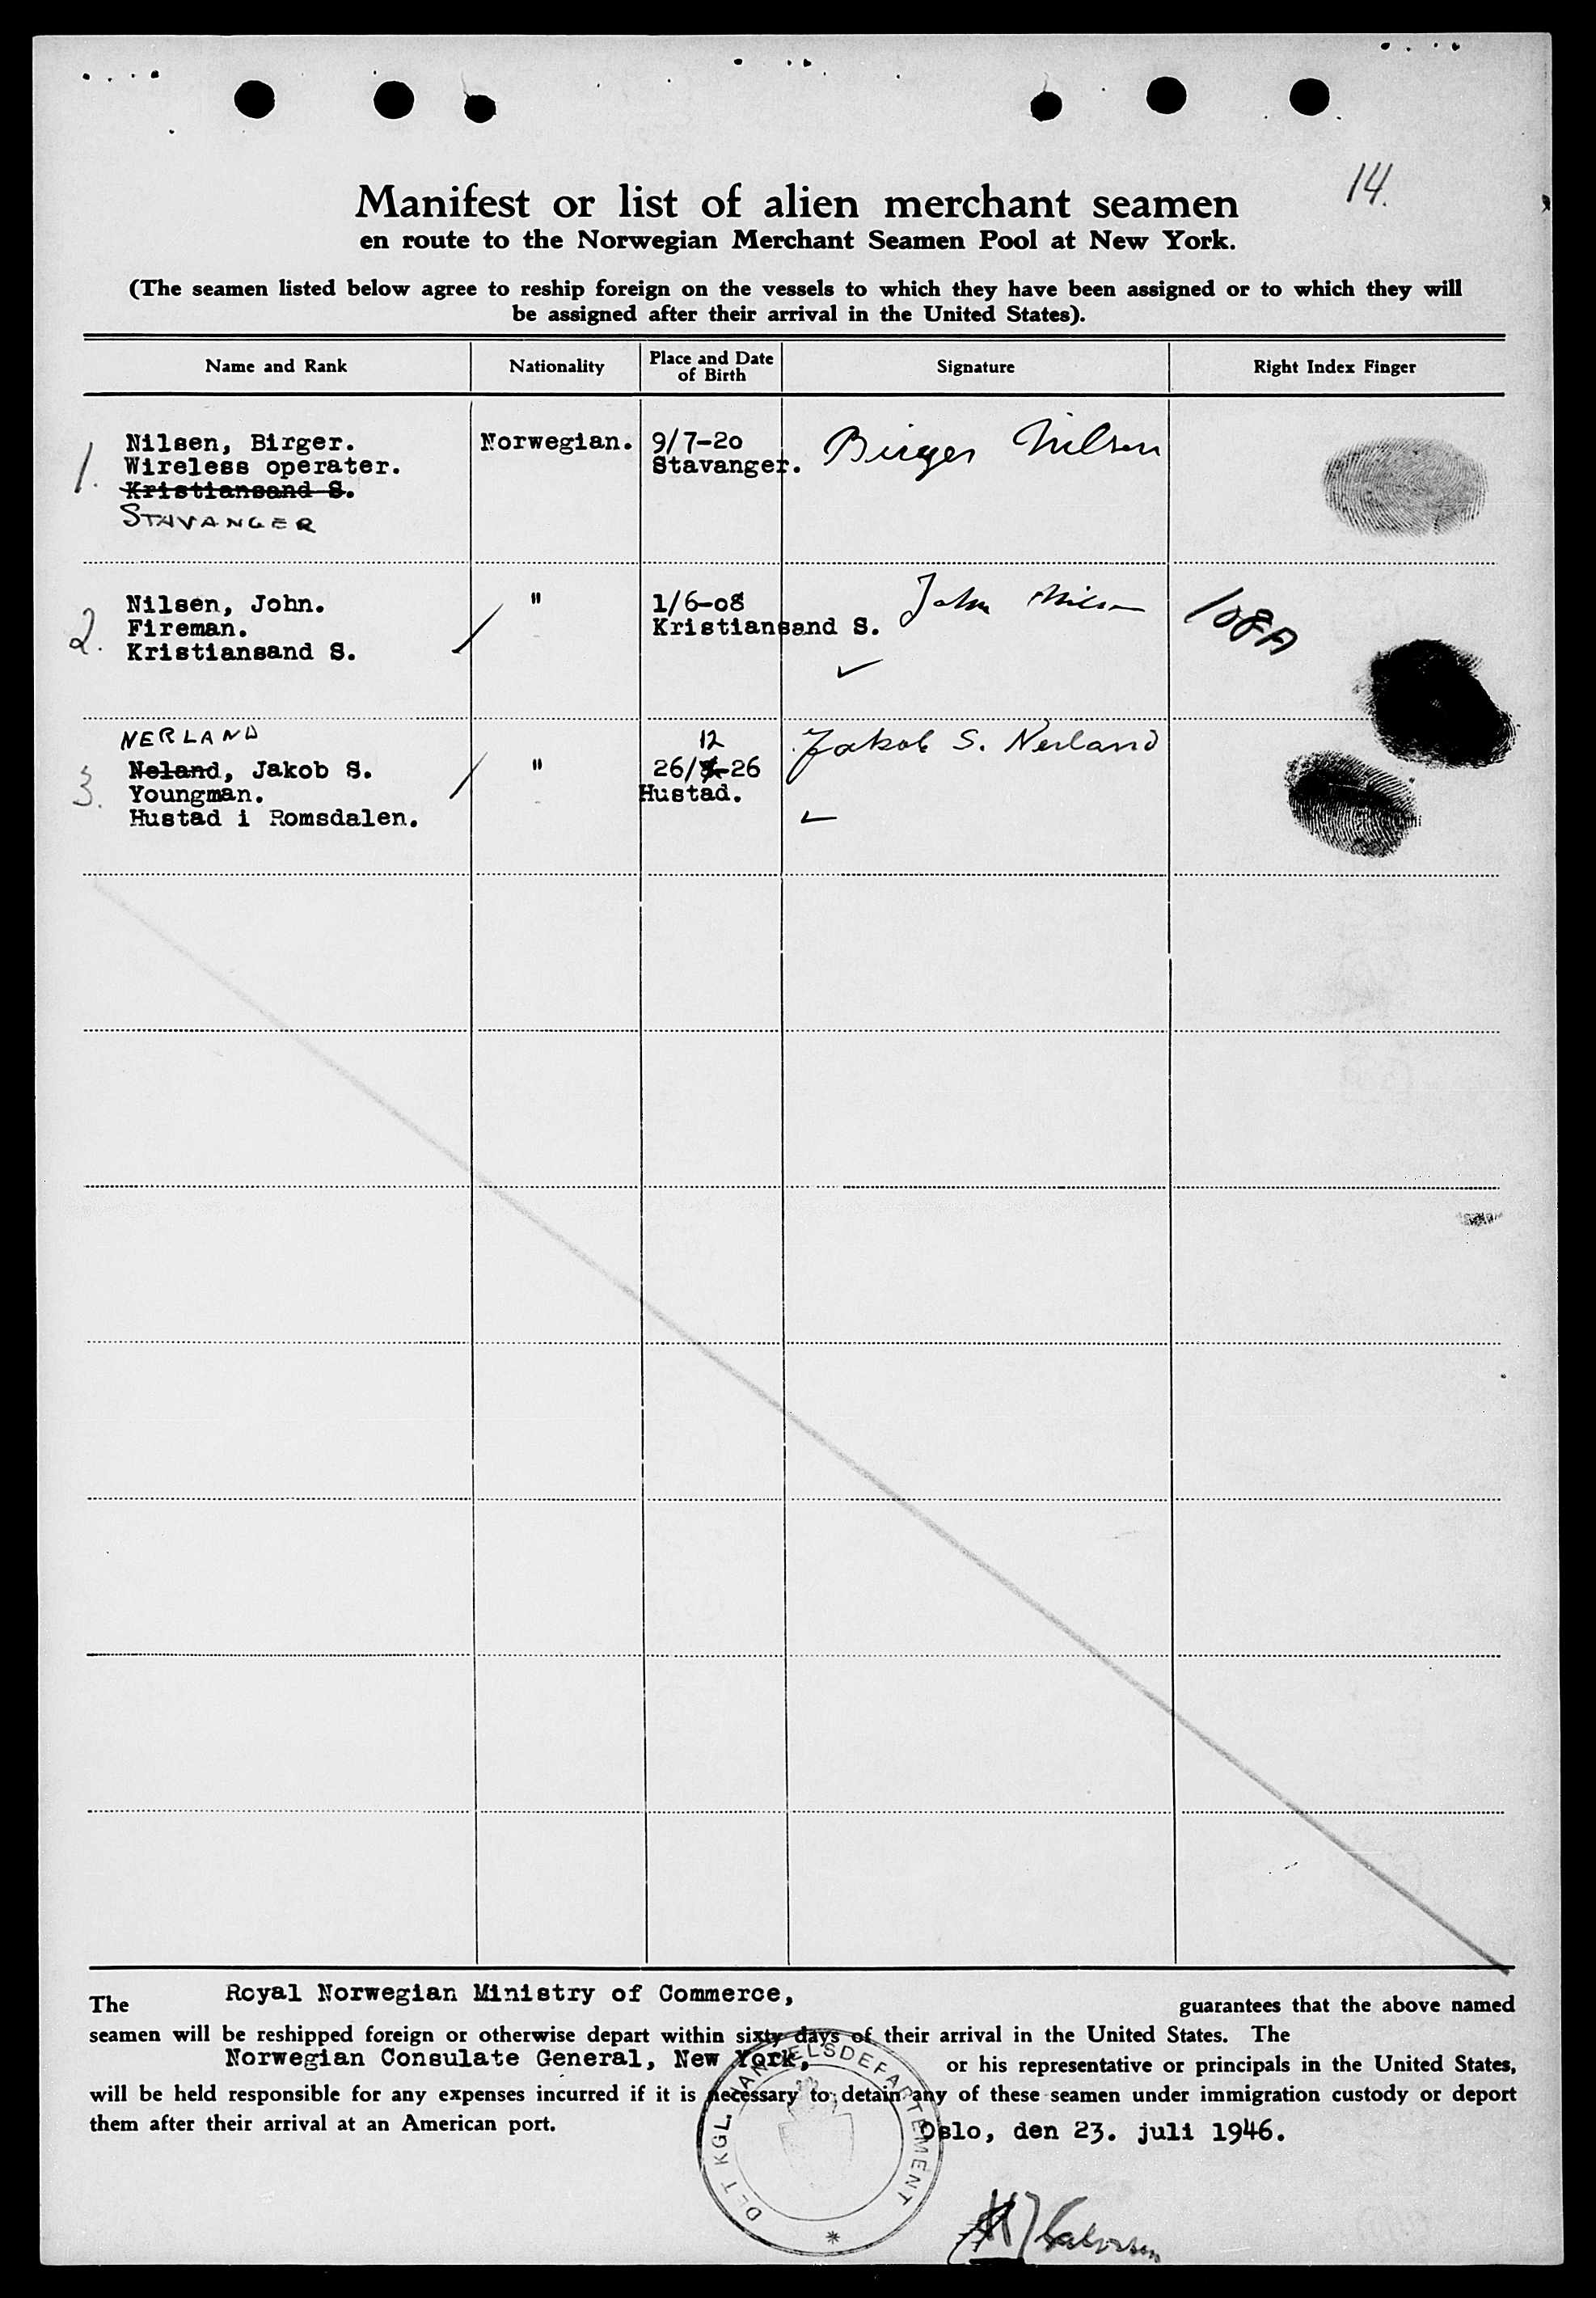 14.
Manifest or list of alien merchant seamen
en route to the Norwegian Merchant Seamen Pool at New York.
(The seamen listed below agree to reship foreign on the vessels to which they have been assigned or to which they will
be assigned after their arrival in the United States).
Name and Rank Nationality Place and Date of Birth Signature Right Index Finger
1. Nilsen, Birger. Norwegian. 9/7-20 Birger Nilsen
Wireless operater. Stavanger.
Kristiansand S.
STAVANGER
2. Nilsen, John. " 1/6-08 John Nilsen 108A
Fireman. Kristiansand S.
Kristiansand S.
NERLAND 12 Jakob S. Nerland
3. Neland, Jakob S. " 26/ -26
Youngman. Hustad.
Hustad i Romsdalen.
The Royal Norwegian Ministry of Commerce, guarantees that the above named
seamen will be reshipped foreign or otherwise depart within sixty days of their arrival in the United States. The
Norwegian Consulate General, New York, or his representative or principals in the United States,
will be held responsible for any expenses incurred if it is necessary to detain any of these seamen under immigration custody or deport
them after their arrival at an American port.
Oslo, den 23. juli 1946.
DET KGL. HANDELSDEPARTEMENT